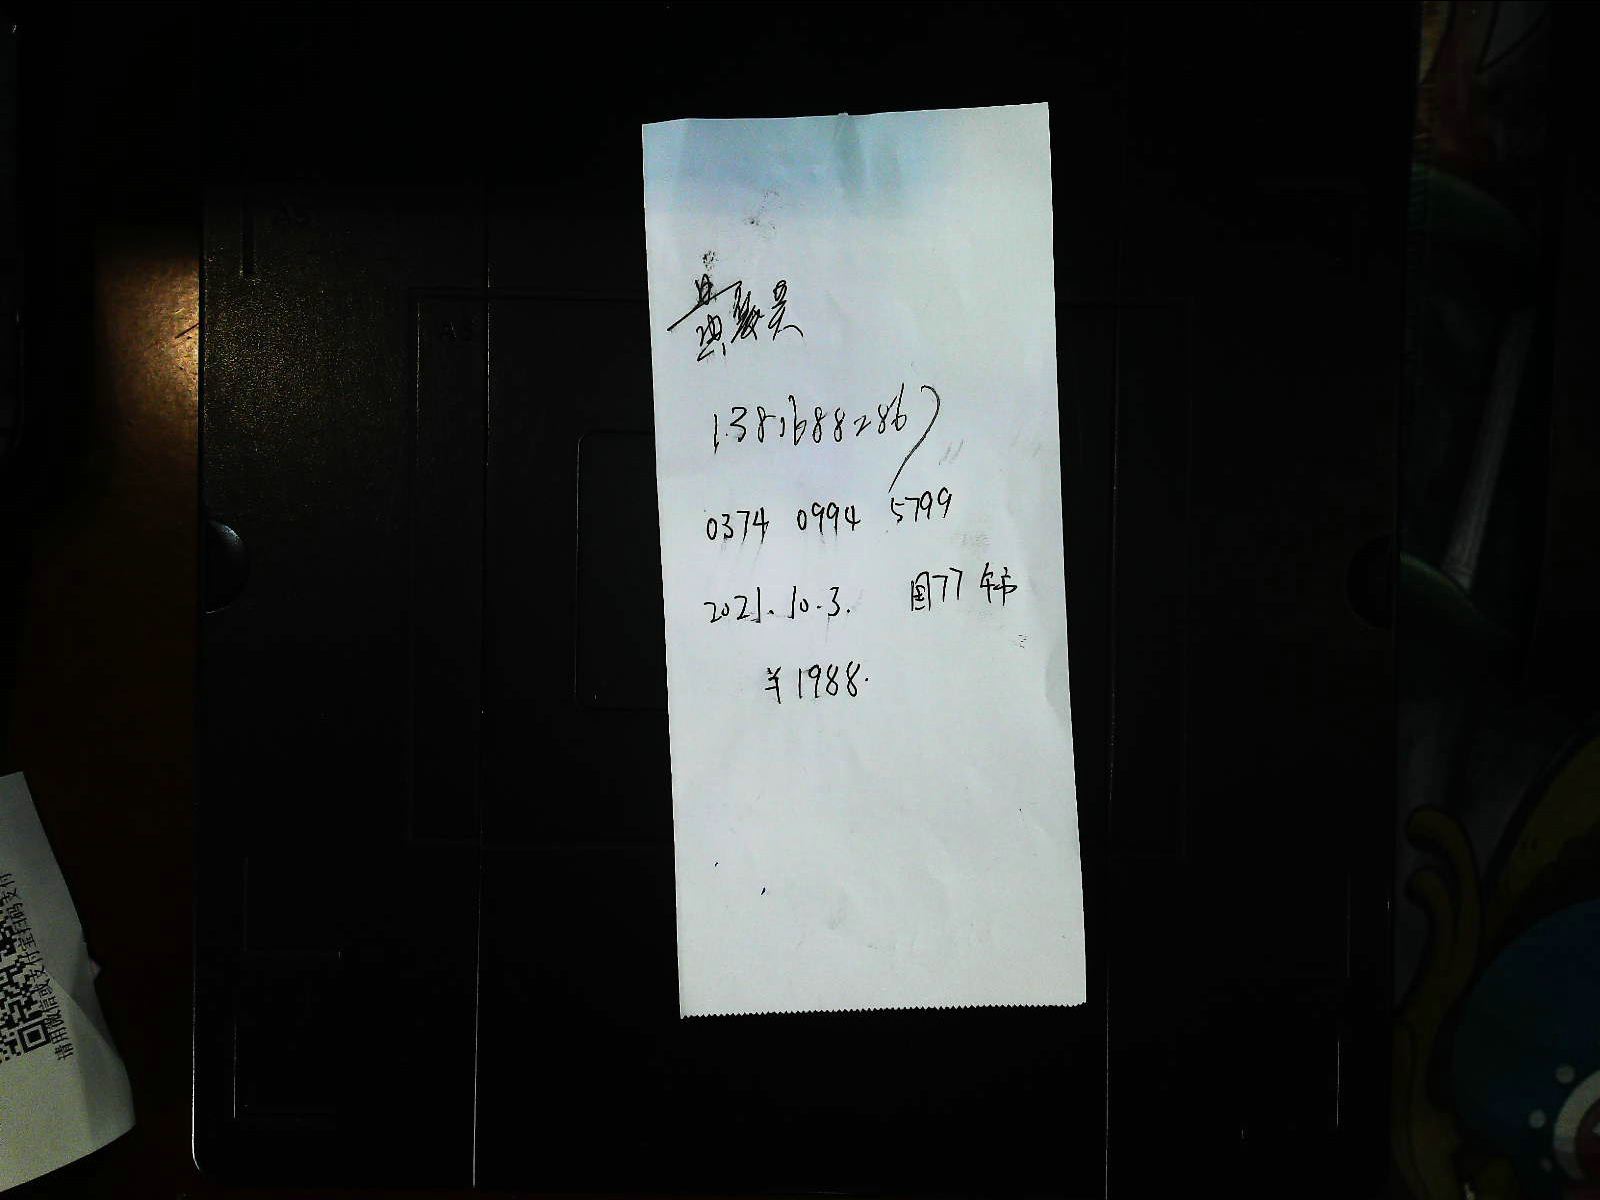 黄
13816882867
0374 0994 5799
2021.10.3. 国77 年卡
¥1988.
请用微信或支付宝扫码支付